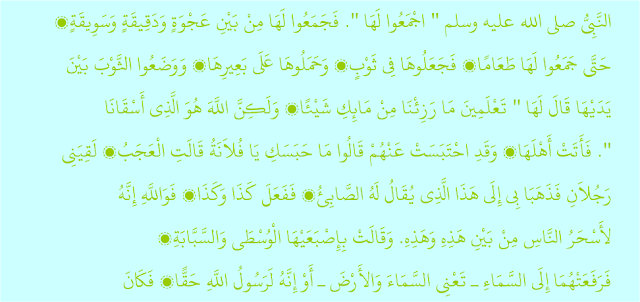 النَّبِيُّ صلى الله عليه وسلم " اجْمَعُوا لَهَا ". فَجَمَعُوا لَهَا مِنْ بَيْنِ عَجْوَةٍ وَدَقِيقَةٍ وَسَوِيقَةٍ۞
حَتَّى جَمَعُوا لَهَا طَعَامًا۞ فَجَعَلُوهَا فِي ثَوْبٍ۞ وَحَمَلُوهَا عَلَى بَعِيرِهَا۞ وَوَضَعُوا الثَّوْبَ بَيْنَ
يَدَيْهَا قَالَ لَهَا " تَعْلَمِينَ مَا رَزِئْنَا مِنْ مَائِكِ شَيْئًا۞ وَلَكِنَّ اللَّهَ هُوَ الَّذِي أَسْقَانَا
". فَأَتَتْ أَهْلَهَا۞ وَقَدِ احْتَبَسَتْ عَنْهُمْ قَالُوا مَا حَبَسَكِ يَا فُلاَنَةُ قَالَتِ الْعَجَبُ۞ لَقِيَنِي
رَجُلاَنِ فَذَهَبَا بِي إِلَى هَذَا الَّذِي يُقَالُ لَهُ الصَّابِئُ۞ فَفَعَلَ كَذَا وَكَذَا۞ فَوَاللَّهِ إِنَّهُ
لأَسْحَرُ النَّاسِ مِنْ بَيْنِ هَذِهِ وَهَذِهِ. وَقَالَتْ بِإِصْبَعَيْهَا الْوُسْطَى وَالسَّبَّابَةِ۞
فَرَفَعَتْهُمَا إِلَى السَّمَاءِ ـ تَعْنِي السَّمَاءَ وَالأَرْضَ ـ أَوْ إِنَّهُ لَرَسُولُ اللَّهِ حَقًّا۞ فَكَانَ